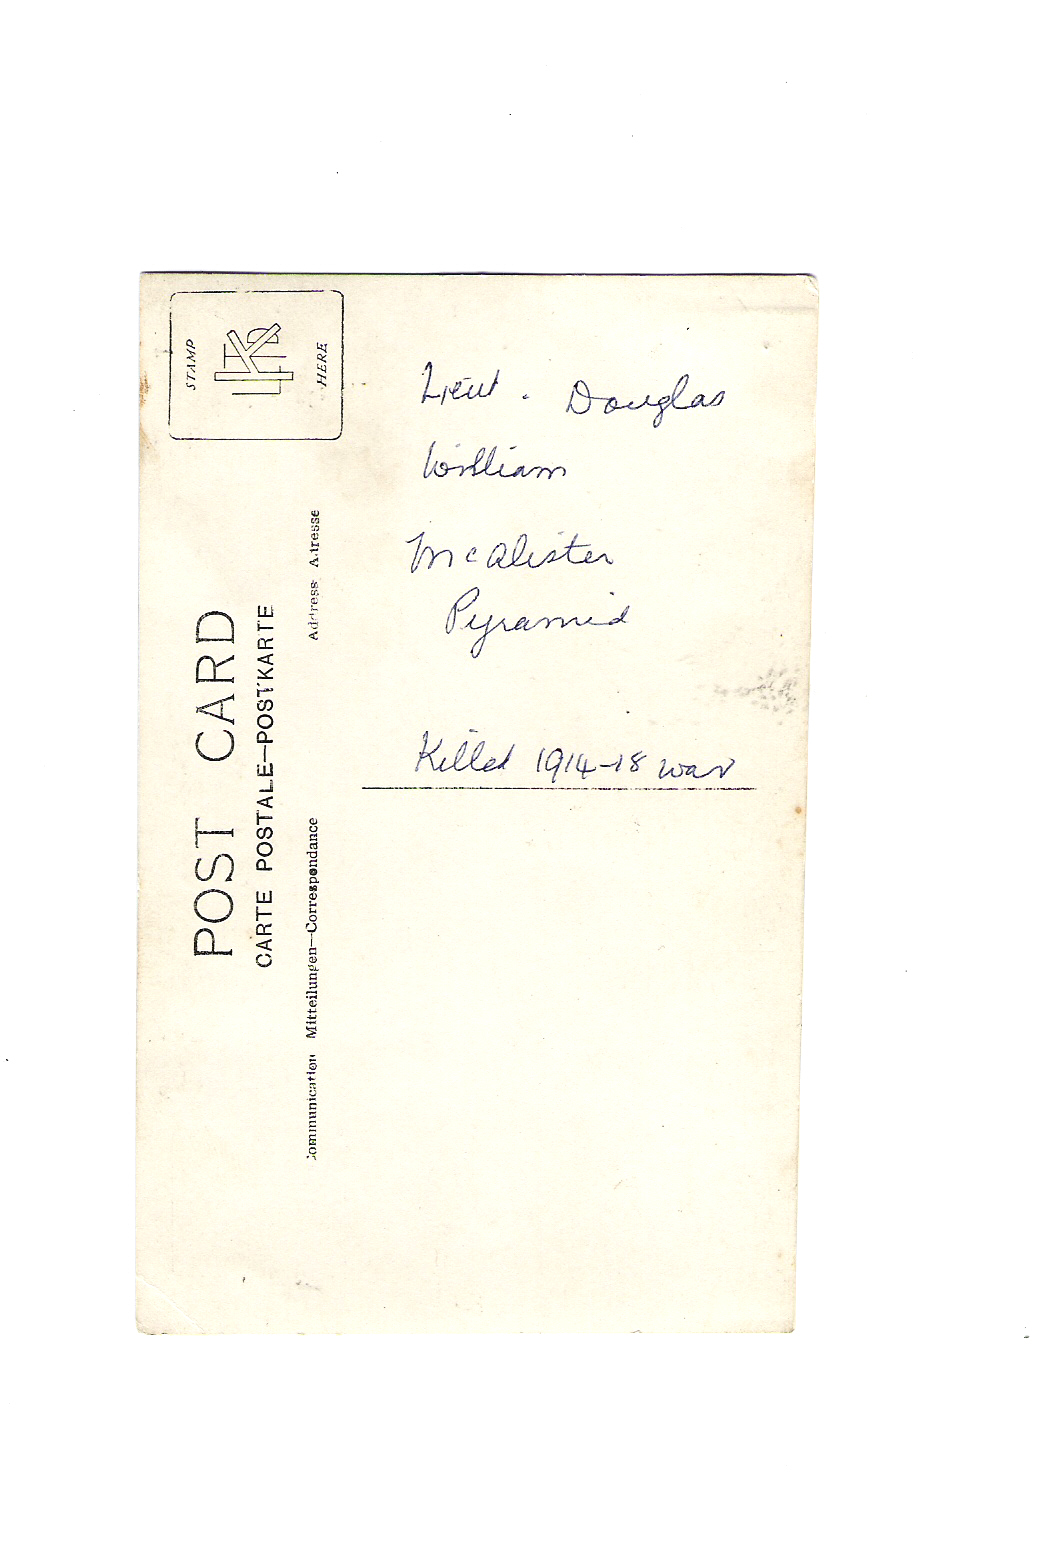 STAMP
K LTD
HERE
POST CARD
CARTE POSTALE—POSTKARTE
Communication Mitteilungen—Correspondance
Address Adresse
Lieut. Douglas
William
McAlister
Pyramid
Killed 1914-18 war